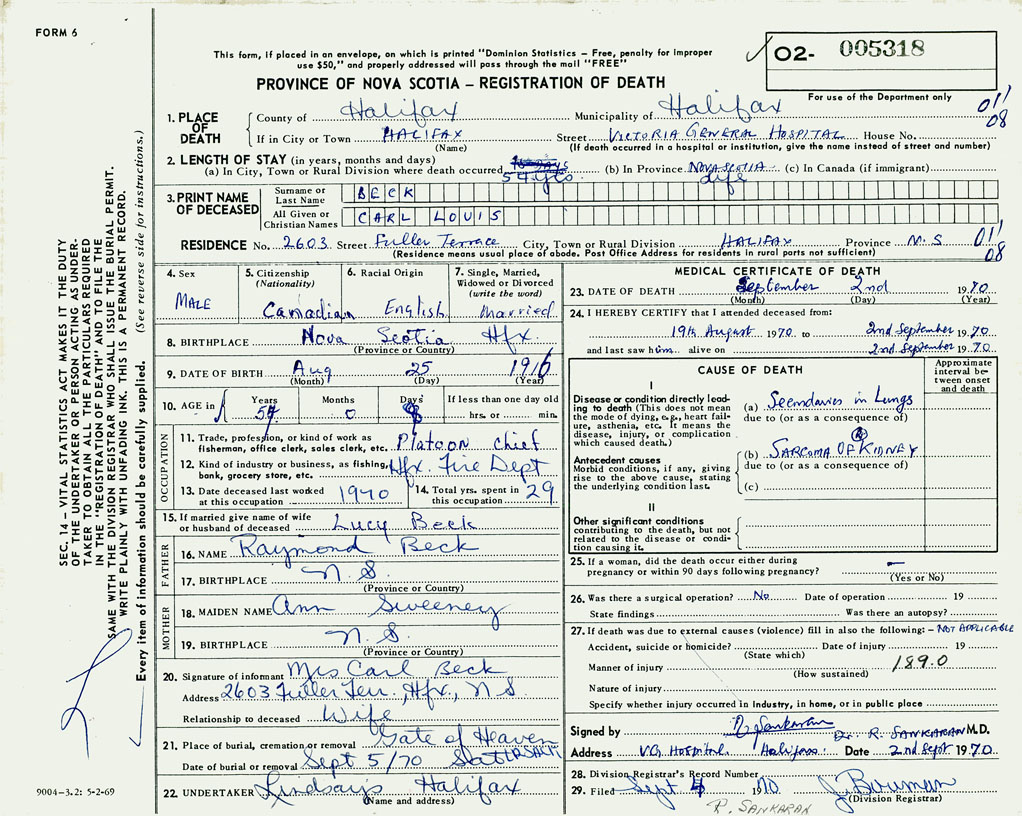 FORM 6
This form, if placed in an envelope, on which is printed "Dominion Statistics – Free, penalty for improper
use $50," and properly addressed will pass through the mail "FREE"
O2- 005318
PROVINCE OF NOVA SCOTIA – REGISTRATION OF DEATH
For use of the Department only
1. PLACE OF DEATH
County of Halifax Municipality of Halifax 011
If in City or Town HALIFAX Street VICTORIA GENERAL HOSPITAL House No. 08
(Name) (If death occurred in a hospital or institution, give the name instead of street and number)
2. LENGTH OF STAY (in years, months and days)
(a) In City, Town or Rural Division where death occurred 54 yrs (b) In Province NOVA SCOTIA Life (c) In Canada (if immigrant)
3. PRINT NAME OF DECEASED
Surname or Last Name BECK
All Given or Christian Names CARL LOUIS
RESIDENCE No. 2603 Street Fuller Terrace City, Town or Rural Division HALIFAX Province N.S 011
(Residence means usual place of abode. Post Office Address for residents in rural ports not sufficient) 08
4. Sex
MALE
5. Citizenship
(Nationality)
Canadian
6. Racial Origin
English
7. Single, Married,
Widowed or Divorced
(write the word)
Married
8. BIRTHPLACE Nova Scotia Hfx.
(Province or Country)
9. DATE OF BIRTH Aug 25 1916
(Month) (Day) (Year)
10. AGE in Years Months Days If less than one day old
54 0 8 hrs. or min.
OCCUPATION
11. Trade, profession, or kind of work as
fisherman, office clerk, sales clerk, etc. Platoon Chief
12. Kind of industry or business, as fishing,
bank, grocery store, etc. Hfx. Fire Dept
13. Date deceased last worked
at this occupation 1970
14. Total yrs. spent in
this occupation 29
15. If married give name of wife
or husband of deceased Lucy Beck
FATHER
16. NAME Raymond Beck
17. BIRTHPLACE N. S.
(Province or Country)
MOTHER
18. MAIDEN NAME Ann Sweeney
19. BIRTHPLACE N. S.
(Province or Country)
20. Signature of informant Mrs Carl Beck
Address 2603 Fuller Terr., Hfx., N S
Relationship to deceased Wife
21. Place of burial, cremation or removal Gate of Heaven
Date of burial or removal Sept 5/70
22. UNDERTAKER Lindsays Halifax
(Name and address)
MEDICAL CERTIFICATE OF DEATH
23. DATE OF DEATH September 2nd 1970
(Month) (Day) (Year)
24. I HEREBY CERTIFY that I attended deceased from:
19th August 1970 to 2nd September 1970
and last saw him alive on 2nd September 1970
CAUSE OF DEATH
Approximate interval between onset and death
I
Disease or condition directly leading
to death (This does not
mean the mode of dying, e.g., heart failure,
asthenia, etc. It means the
disease, injury, or complication
which caused death.)
(a) Secondaries in Lungs
due to (or as a consequence of)
Antecedent causes
Morbid conditions, if any, giving
rise to the above cause, stating
the underlying condition last.
(b) SARCOMA OF (R) KIDNEY
due to (or as a consequence of)
(c)
II
Other significant conditions
contributing to the death, but not
related to the disease or condition
causing it.
25. If a woman, did the death occur either during
pregnancy or within 90 days following pregnancy? –
(Yes or No)
26. Was there a surgical operation? No Date of operation 19
State findings Was there an autopsy?
27. If death was due to external causes (violence) fill in also the following: – NOT APPLICABLE
Accident, suicide or homicide? Date of injury 19
(State which)
Manner of injury 189.0
(How sustained)
Nature of injury
Specify whether injury occurred in Industry, in home, or in public place
Signed by R Sankaran Dr. R. SANKARAN M.D.
Address V.G. HOSPITAL Halifax Date 2nd Sept 1970
28. Division Registrar's Record Number
29. Filed Sept 4 1970 J. Bowman
(Division Registrar)
R. SANKARAN
SEC. 14 – VITAL STATISTICS ACT MAKES IT THE DUTY
OF THE UNDERTAKER OR PERSON ACTING AS UNDERTAKER
TO OBTAIN ALL THE PARTICULARS REQUIRED
IN THE "REGISTRATION OF DEATH" AND TO FILE THE
SAME WITH THE DIVISION REGISTRAR WHO SHALL ISSUE THE BURIAL PERMIT.
WRITE PLAINLY WITH UNFADING INK. THIS IS A PERMANENT RECORD.
Every item of information should be carefully supplied. (See reverse side for instructions.)
9004-3.2: 5-2-69